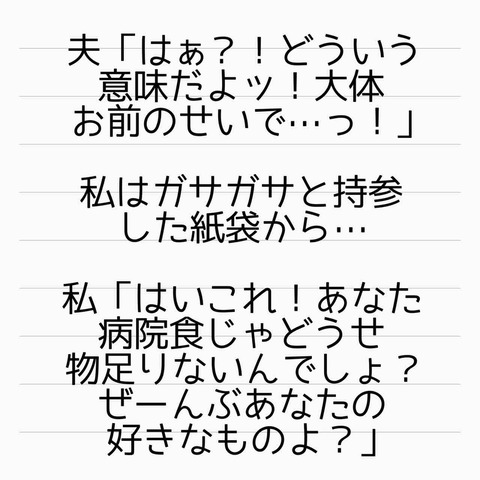 夫「はぁ？！どういう
意味だよッ！大体
お前のせいで…っ！」
私はガサガサと持参
した紙袋から…
私「はいこれ！あなた
病院食じゃどうせ
物足りないんでしょ？
ぜーんぶあなたの
好きなものよ？」